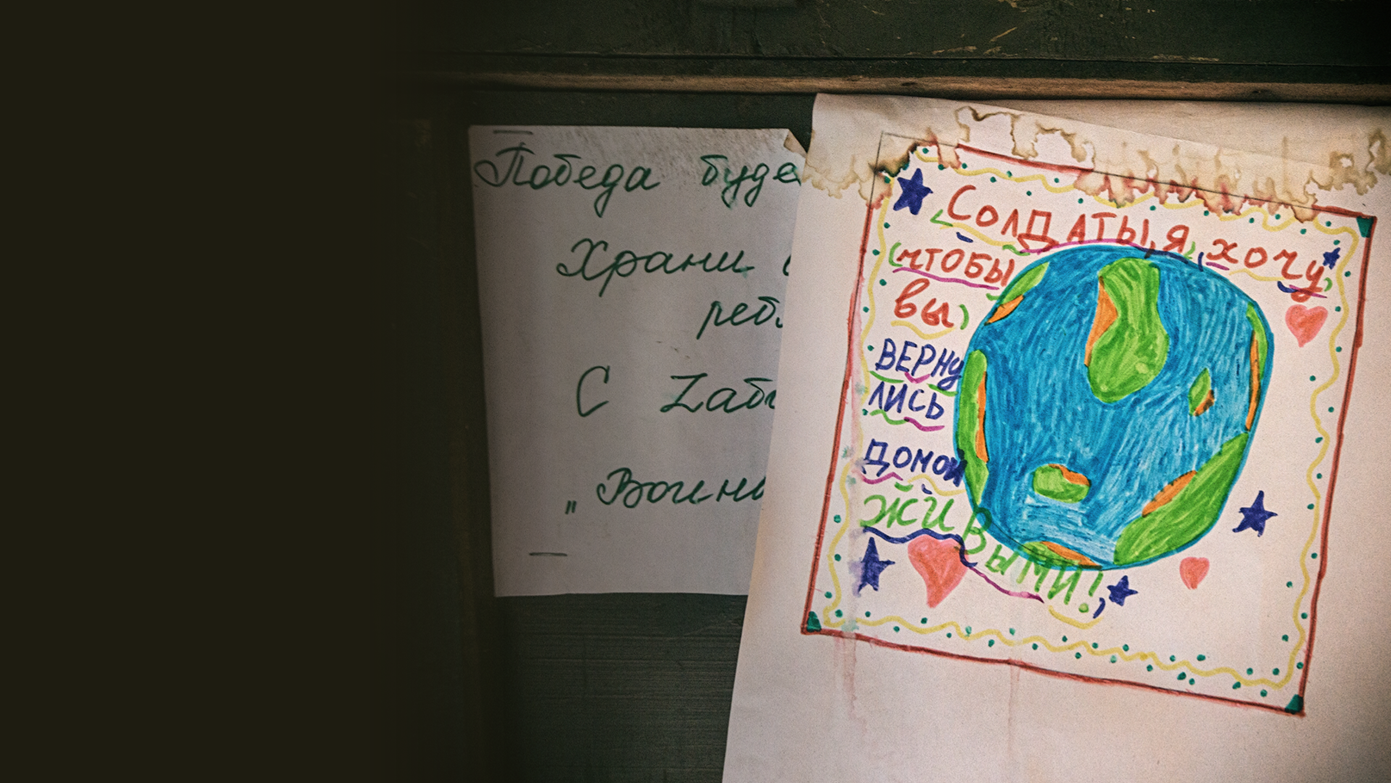 Победа буде
Храни
С Zаб
„Воин
Солдаты, я хочу,
чтобы
вы
верну
лись
домой
живыми!